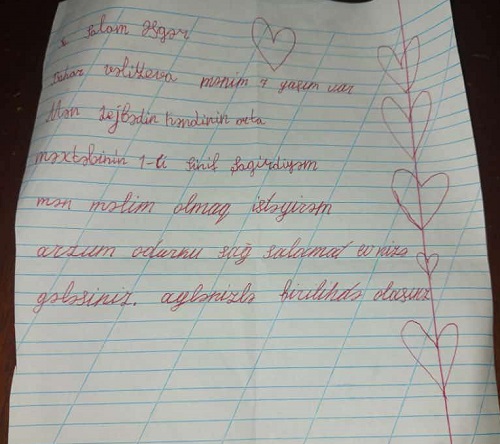 salam əsgər
Səhər vəliyeva mənim 7 yaşım var
Mən Zejbədin kəndinin orta
məxtəbinin 1-ci sinif şagirdiyəm
mən məlim olmaq istəyirəm
arzum odurku sağ salamat evnizə
gələsiniz. aylənizlə birlihdə olasınız